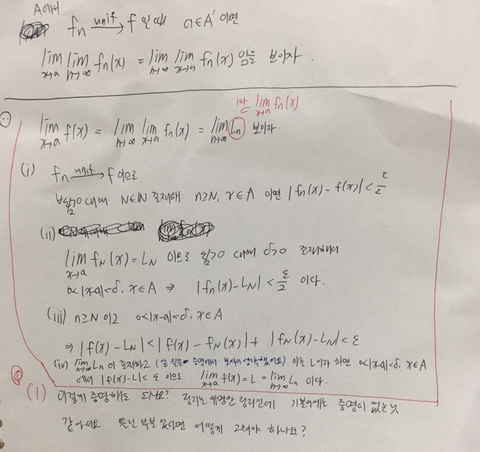 A에서
fn unif→ f 일때 a∈A' 이면
lim x→a lim n→∞ fn(x) = lim n→∞ lim x→a fn(x) 임을 보이자.
lim x→a fn(x)
lim x→a f(x) = lim n→∞ lim x→a fn(x) = lim n→∞ Ln 보이자.
(i) fn unif→ f 이므로
∀ε>0 대해 N∈ℕ 존재해 n≥N, x∈A 이면 |fn(x) - f(x)| < ε/2
(ii)
lim x→a fN(x) = LN 이므로 ∀ε>0 대해 δ>0 존재해서
0<|x-a|<δ, x∈A ⇒ |fN(x)-LN| < ε/2 이다.
(iii) n≥N 이고 0<|x-a|<δ, x∈A
⇒ |f(x) - LN| < |f(x) - fN(x)| + |fN(x)-LN| < ε
(iv) lim n→∞ Ln 이 존재하고 이를 L이라 하면 0<|x-a|<δ, x∈A
에서 |f(x)-L| < ε 이므로 lim x→a f(x) = L = lim n→∞ Ln 이다.
(1) 이렇게 증명해도 되나요? 기본서에는 증명이 없는 것
같아서요 틀린 부분 있다면 어떻게 고쳐야 하나요?